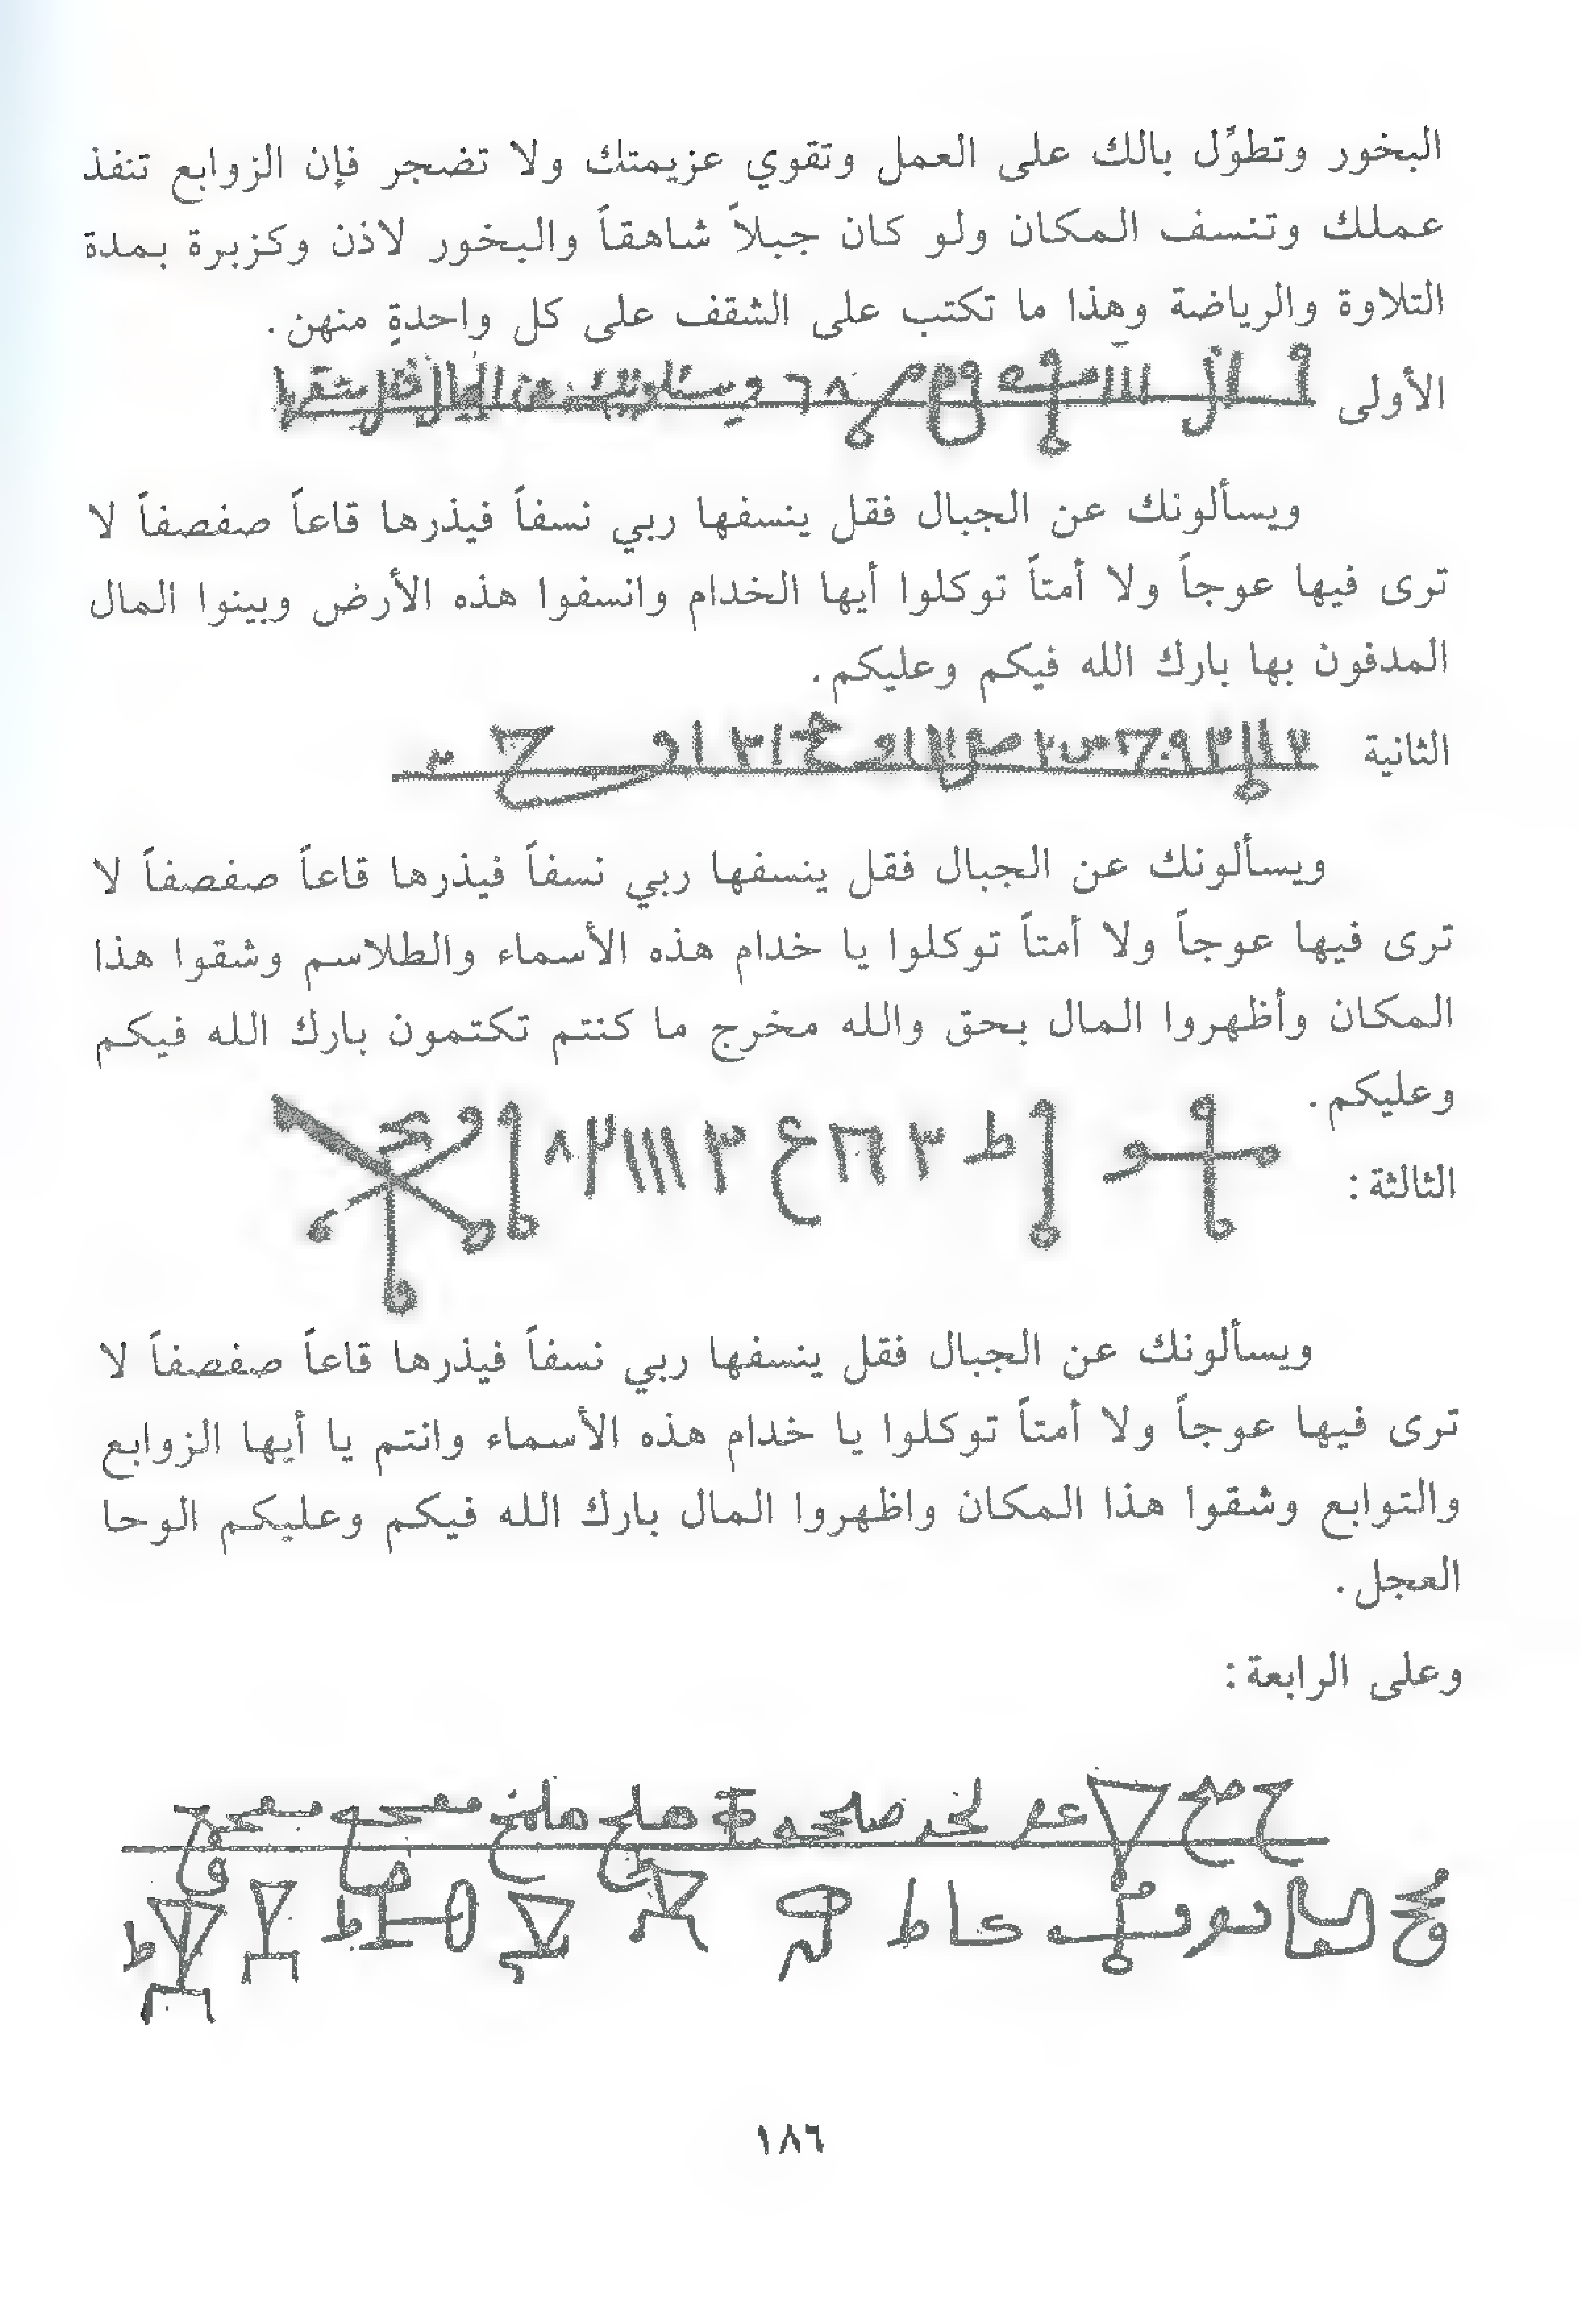 البخور وتطوِّل بالك على العمل وتقوي عزيمتك ولا تضجر فإن الزوابع تنفذ
عملك وتنسف المكان ولو كان جبلاً شاهقاً والبخور لاذن وكزبرة بمدة
التلاوة والرياضة وهذا ما تكتب على الشقف على كل واحدةٍ منهن.
الأولى
ويسألونك عن الجبال فقل ينسفها ربي نسفاً فيذرها قاعاً صفصفاً لا
ترى فيها عوجاً ولا أمتاً توكلوا أيها الخدام وانسفوا هذه الأرض وبينوا المال
المدفون بها بارك الله فيكم وعليكم.
الثانية
ويسألونك عن الجبال فقل ينسفها ربي نسفاً فيذرها قاعاً صفصفاً لا
ترى فيها عوجاً ولا أمتاً توكلوا يا خدام هذه الأسماء والطلاسم وشقوا هذا
المكان وأظهروا المال بحق والله مخرج ما كنتم تكتمون بارك الله فيكم
وعليكم.
الثالثة:
ويسألونك عن الجبال فقل ينسفها ربي نسفاً فيذرها قاعاً صفصفاً لا
ترى فيها عوجاً ولا أمتاً توكلوا يا خدام هذه الأسماء وانتم يا أيها الزوابع
والتوابع وشقوا هذا المكان واظهروا المال بارك الله فيكم وعليكم الوحا
العجل.
وعلى الرابعة:
١٨٦